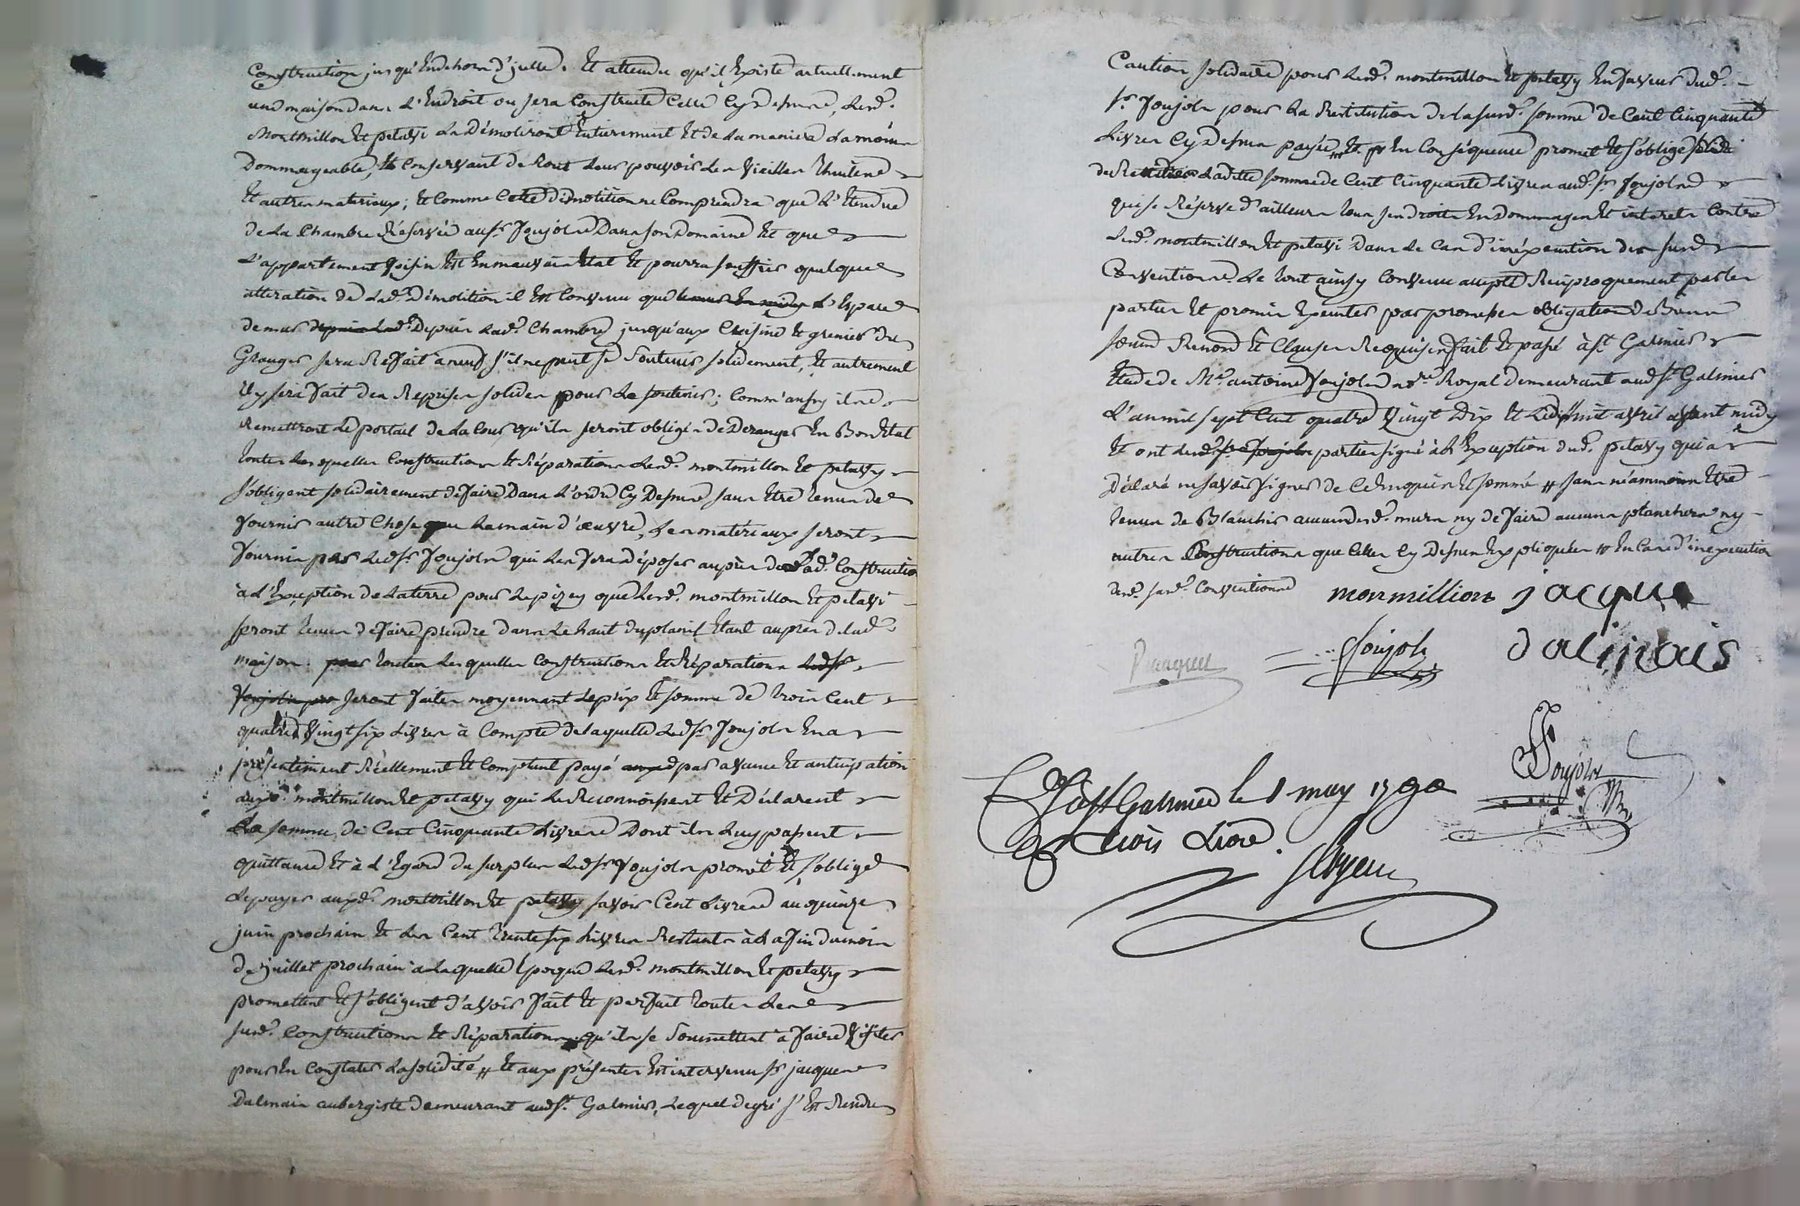 Construction jusqu'en dehors d'icelle. Et attendu qu'il Existe actuellement
une maison dans L'Endroit ou sera Construite Celle Cy Dessus, Lesd.
Montmillon Et petassi La Démoliront Entierement Et de La maniere La moins
Dommageable, Et Conservant de tout Leur pouvoir Les vieilles thuiles
Et autres materiaux; Et comme Cette Démolition ne Comprendra que L'Etendue
de La Chambre Réservée au sr Joujoln Dans son Domaine Et que
L'appartement voisin Est En mauvais Etat Et pourra souffrir quelque
alteration de Lad. Démolition il Est Convenu que L'Espace
de mur Depuis Lad. Chambre jusqu'aux Cuisine Et grenier du
Granger sera Refait a neuf s'il ne peut se soutenir solidement, Et autrement
il y sera fait des Reprises solides pour Le soutenir; Comm'aussy ils
Remettront Le portail de La Cour qu'ils seront obligés de Deranger En Bon Etat
toutes Lesquelles Constructions Et Réparations Lesd. montmillon Et petassy
s'obligent solidairement de faire Dans L'ordre Cy Dessus sans Etre tenus de
fournir autre Chose que La main d'oeuvre, Les matériaux seront
fournis par Led. sr Joujoln qui Les fera déposer auprès de Lad. Construction
à L'Exception de La terre pour Le pizey que Lesd. montmillon Et petassi
seront tenus de faire prendre dans Le haut du plasil Etant auprès de Lad.
maison. toutes Lesquelles Constructions Et Réparations
seront faites moyennant Le prix Et somme de trois Cent
quatre vingt six Livres à Compte de Laquelle Led. sr Joujoln En a
présentement Réellement Et Comptant payé par avance Et anticipation
auxd. montmillon Et petassy qui Le Reconnoissent Et Déclarent
La somme de Cent Cinquante Livres Dont ils Luy passent
quittance Et à L'Egard du surplus Led. sr Joujoln promet Et s'oblige
Le payer auxd. montmillon Et petassy savoir Cent Livres au quinze
juin prochain Et Les Cent trente six Livres Restants à La fin du mois
De juillet prochain à Laquelle Epoque Lesd. montmillon Et petassy
promettent Et s'obligent d'avoir fait Et parfait toutes Les
susd. Constructions Et Réparations qu'ils se soumettent à faire Visiter
pour En Constater La solidité, Et aux présentes Est intervenu sr jacques
Dalmais aubergiste demeurant aud. st Galmier, Lequel de gré s'Est Rendu
Caution solidaire pour Lesd. montmillon Et petassy En faveur dud.
sr Joujoln pour La Restitution de La susd. somme de Cent Cinquante
Livres Cy Dessus payée, Et En Conséquence promet Et s'oblige
de Restituer Ladite somme de Cent Cinquante Livres aud. sr Joujoln
qui se Réserve d'ailleurs tous ses droits En Dommages Et interets Contre
Lesd. montmillon Et petassi Dans Le Cas d'inexécution des susd.
Conventions. Le tout ainsy Convenu accepté Réciproquement par les
parties Et promis Executer par promesses obligations de Biens
soumis Renonc. Et Clauses Requises fait Et passé à st Galmier
Etude de Me antoine Joujoln nore Royal demeurant aud. st Galmier
L'an mil sept Cent quatre vingt Dix Et Le Dixhuit avril avant midy
Et ont Lesd. parties signé à L'Exception dud. petassy qui a
Déclaré ne savoir signer de Ce Enquis Et sommé // sans néammoins Etre
tenus de Blanchir aucun desd. murs ny de faire aucuns planchers ny
autres Constructions que Celles Cy Dessus Expliquées // En Cas d'inexécution
desd. susd. Conventions
monmillion jacque
dalmais
Joujoln
Joujoln
Cé à st Galmier le 1 may 1790
trois Livre.